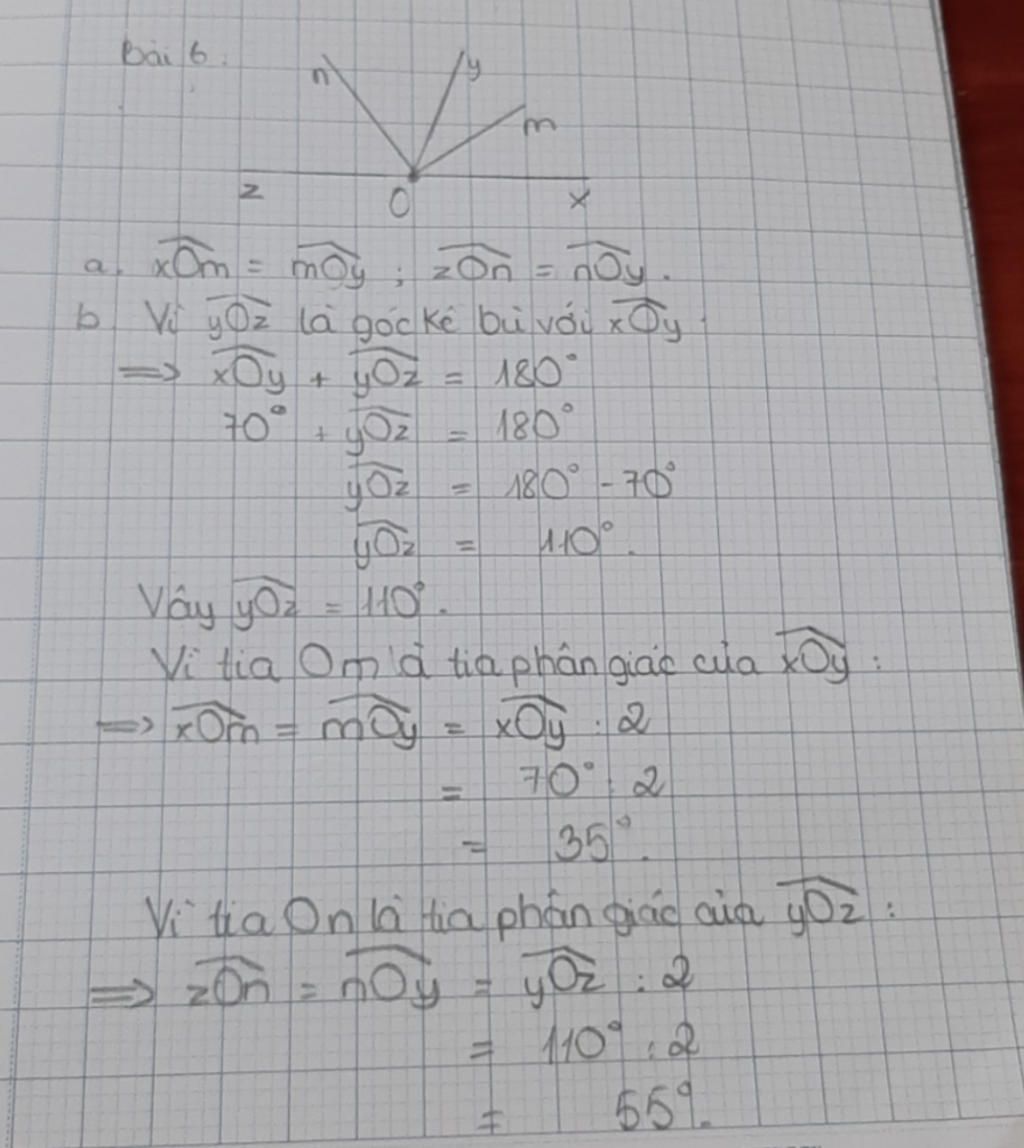 Bài 6:
n
y
m
z
O
x
a. xOm = mOy ; zOn = nOy.
b Vì yOz là góc kề bù với xOy
=> xOy + yOz = 180°
70° + yOz = 180°
yOz = 180° - 70°
yOz = 110°.
Vậy yOz = 110°.
Vì tia Om là tia phân giác của xOy :
=> xOm = mOy = xOy : 2
= 70° : 2
= 35°.
Vì tia On là tia phân giác của yOz :
=> zOn = nOy = yOz : 2
= 110° : 2
= 55°.